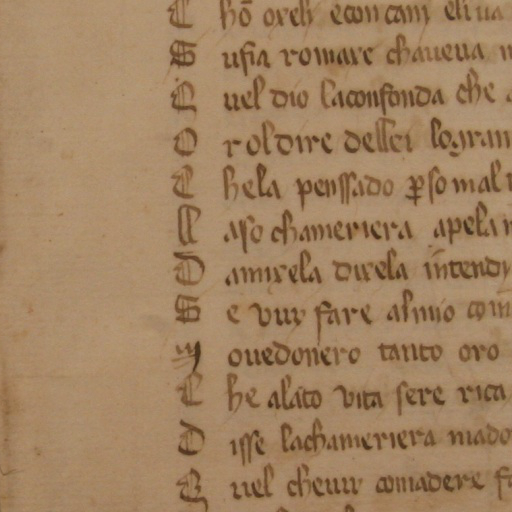 C hõ oxeli econ cani eli ua
S usia romare chaueua
Q uel dio laconfonda che
O r ol dire dellei logran
C hela penssado ꝑso mal
N aso chameriera apela
D amixela dixela intendy
S e vuy fare al mio com
M ouedonero tanto oro
C he alato vita sere rica
D isse lachameriera mado
Q uel cheuuy comadere fa